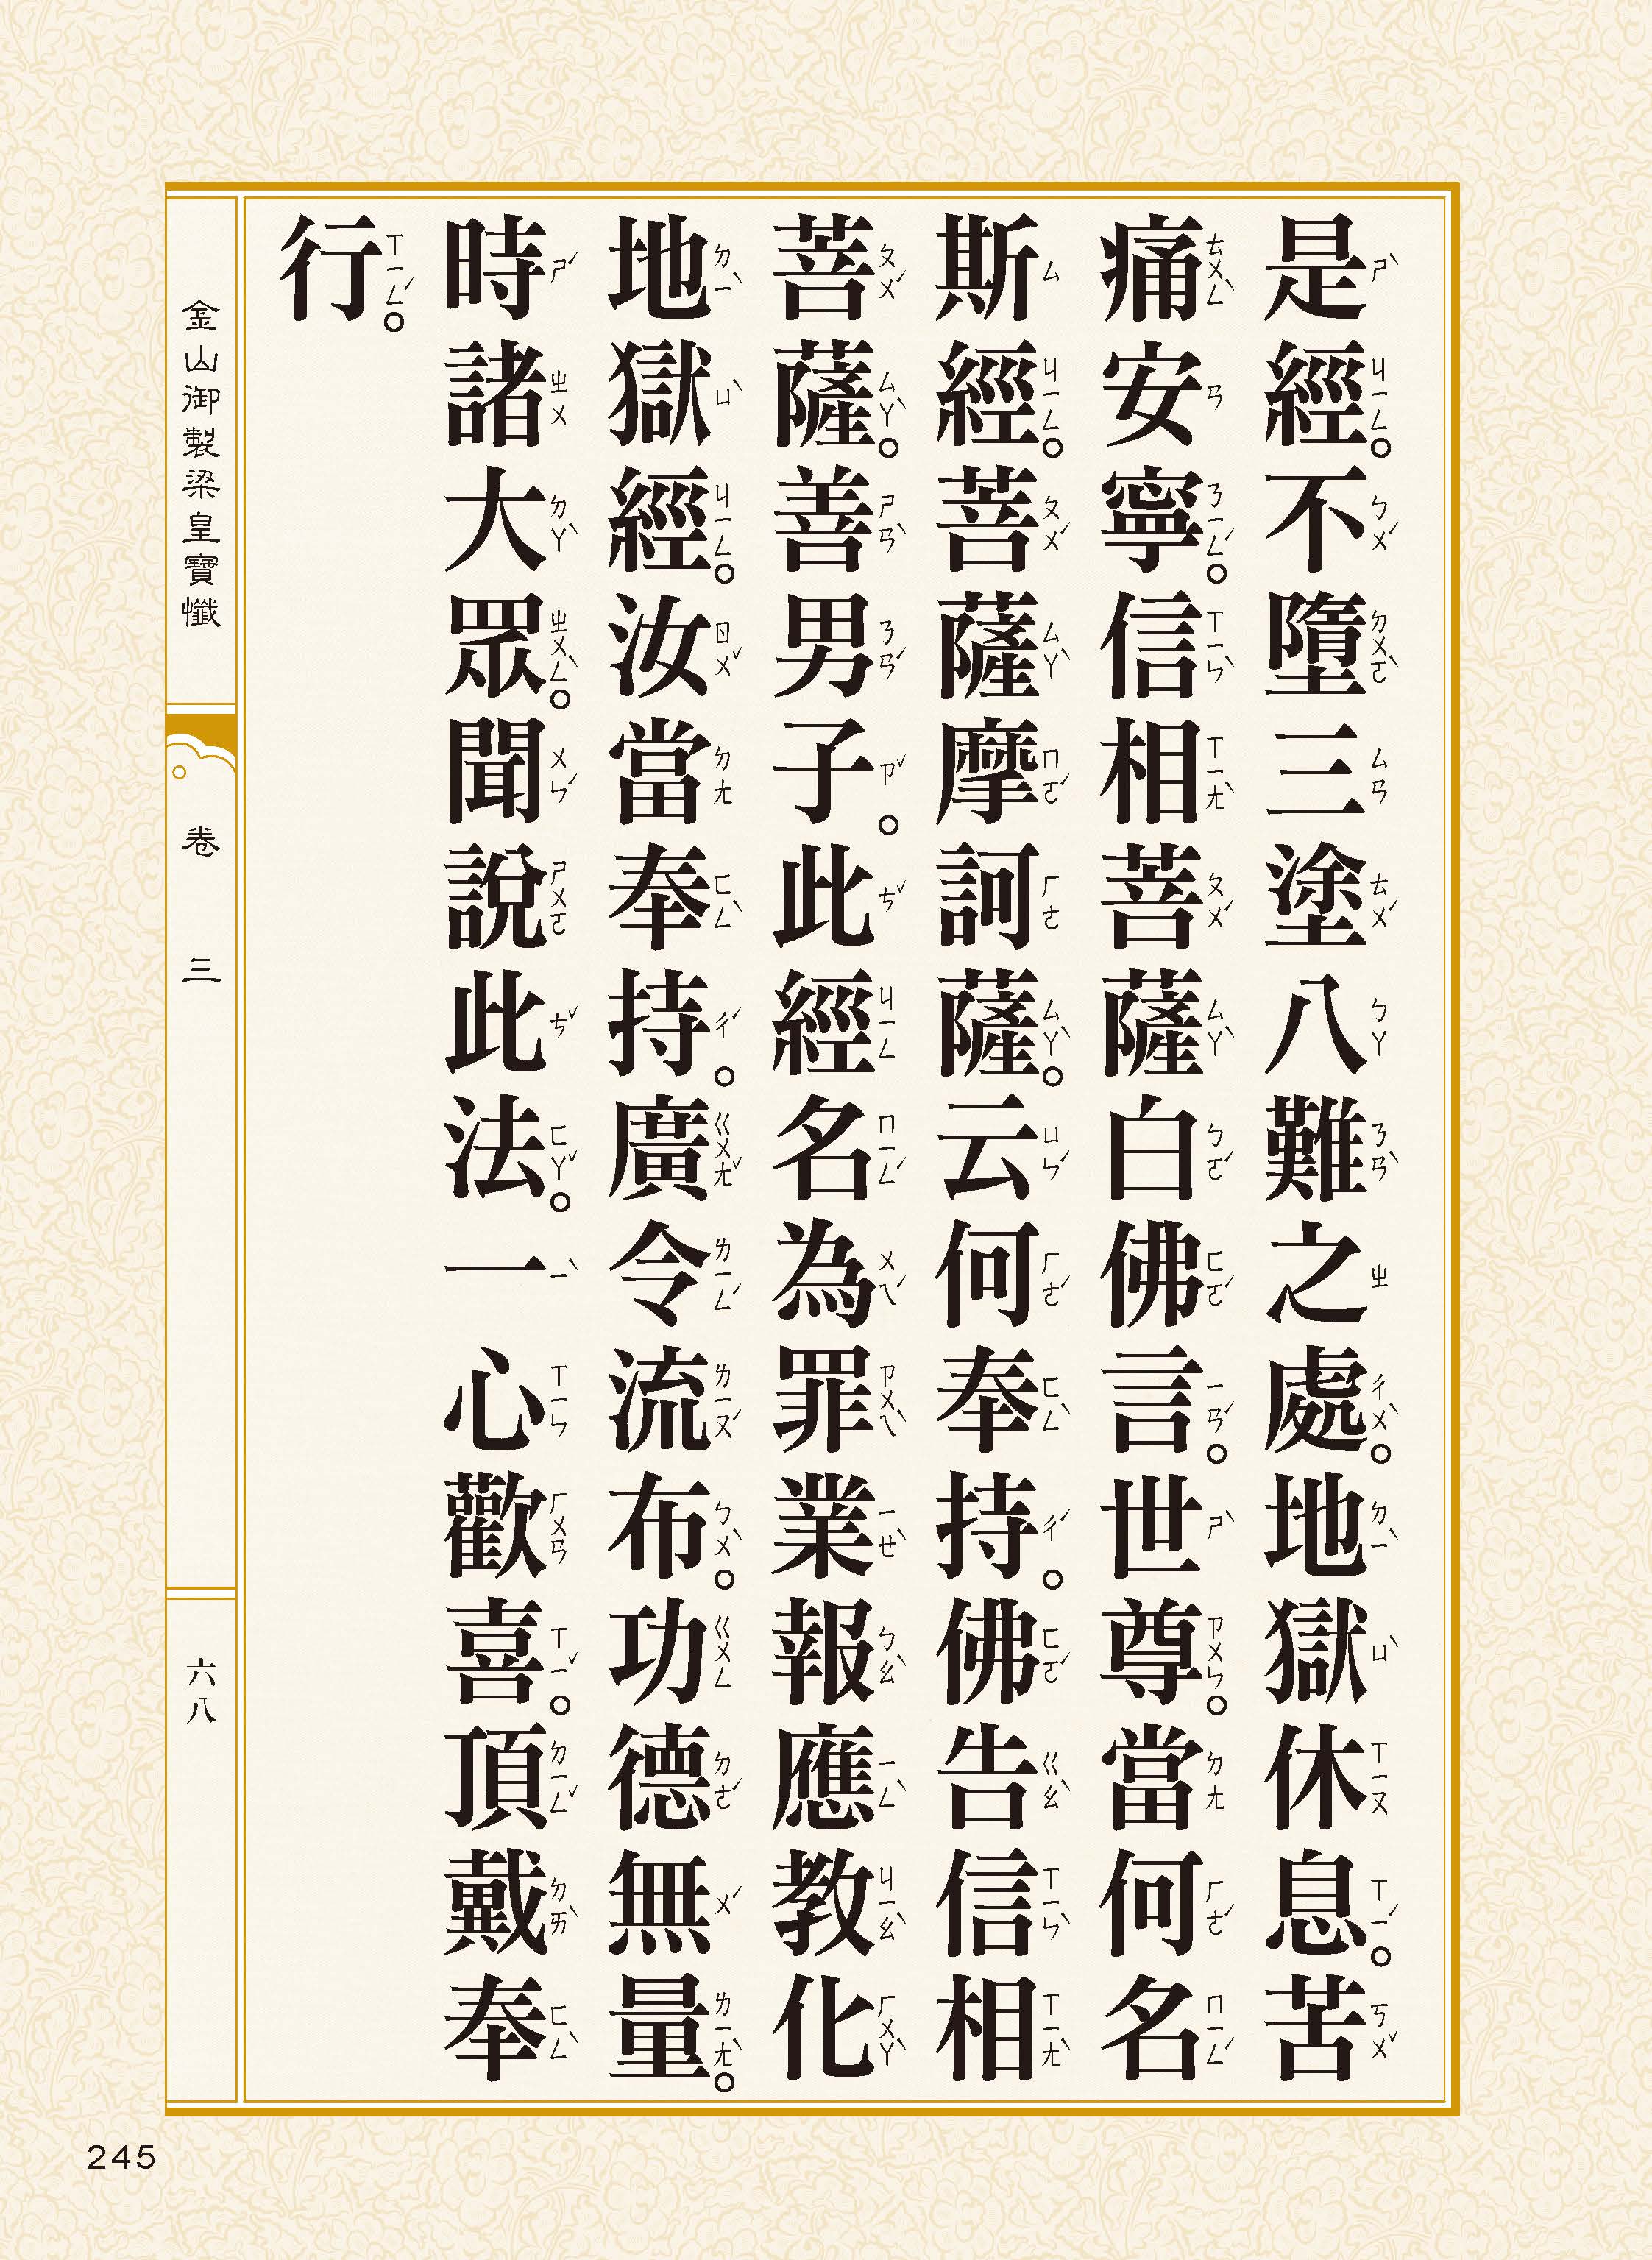 是經。不墮三塗八難之處。地獄休息。苦
痛安寧。信相菩薩白佛言。世尊。當何名
斯經。菩薩摩訶薩。云何奉持。佛告信相
菩薩。善男子。此經名為罪業報應教化
地獄經。汝當奉持。廣令流布。功德無量。
時諸大眾。聞說此法。一心歡喜。頂戴奉
行。
金山御製梁皇寶懺
卷三
六八
245